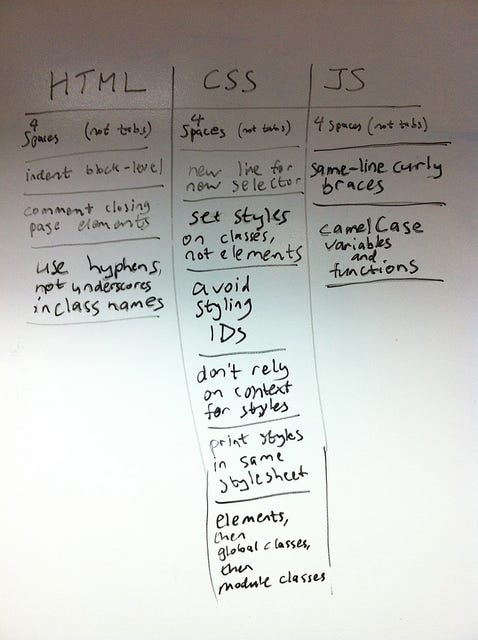 HTML
4
spaces (not tabs)
indent block-level
comment closing
page elements
use hyphens,
not underscores
in class names
CSS
4
spaces (not tabs)
new line for
new selector
set styles
on classes,
not elements
avoid
styling
IDs
don't rely
on context
for styles
print styles
in same
stylesheet
elements,
then
global classes,
then
module classes
JS
4 spaces (not tabs)
same-line curly
braces
camelCase
variables
and
functions